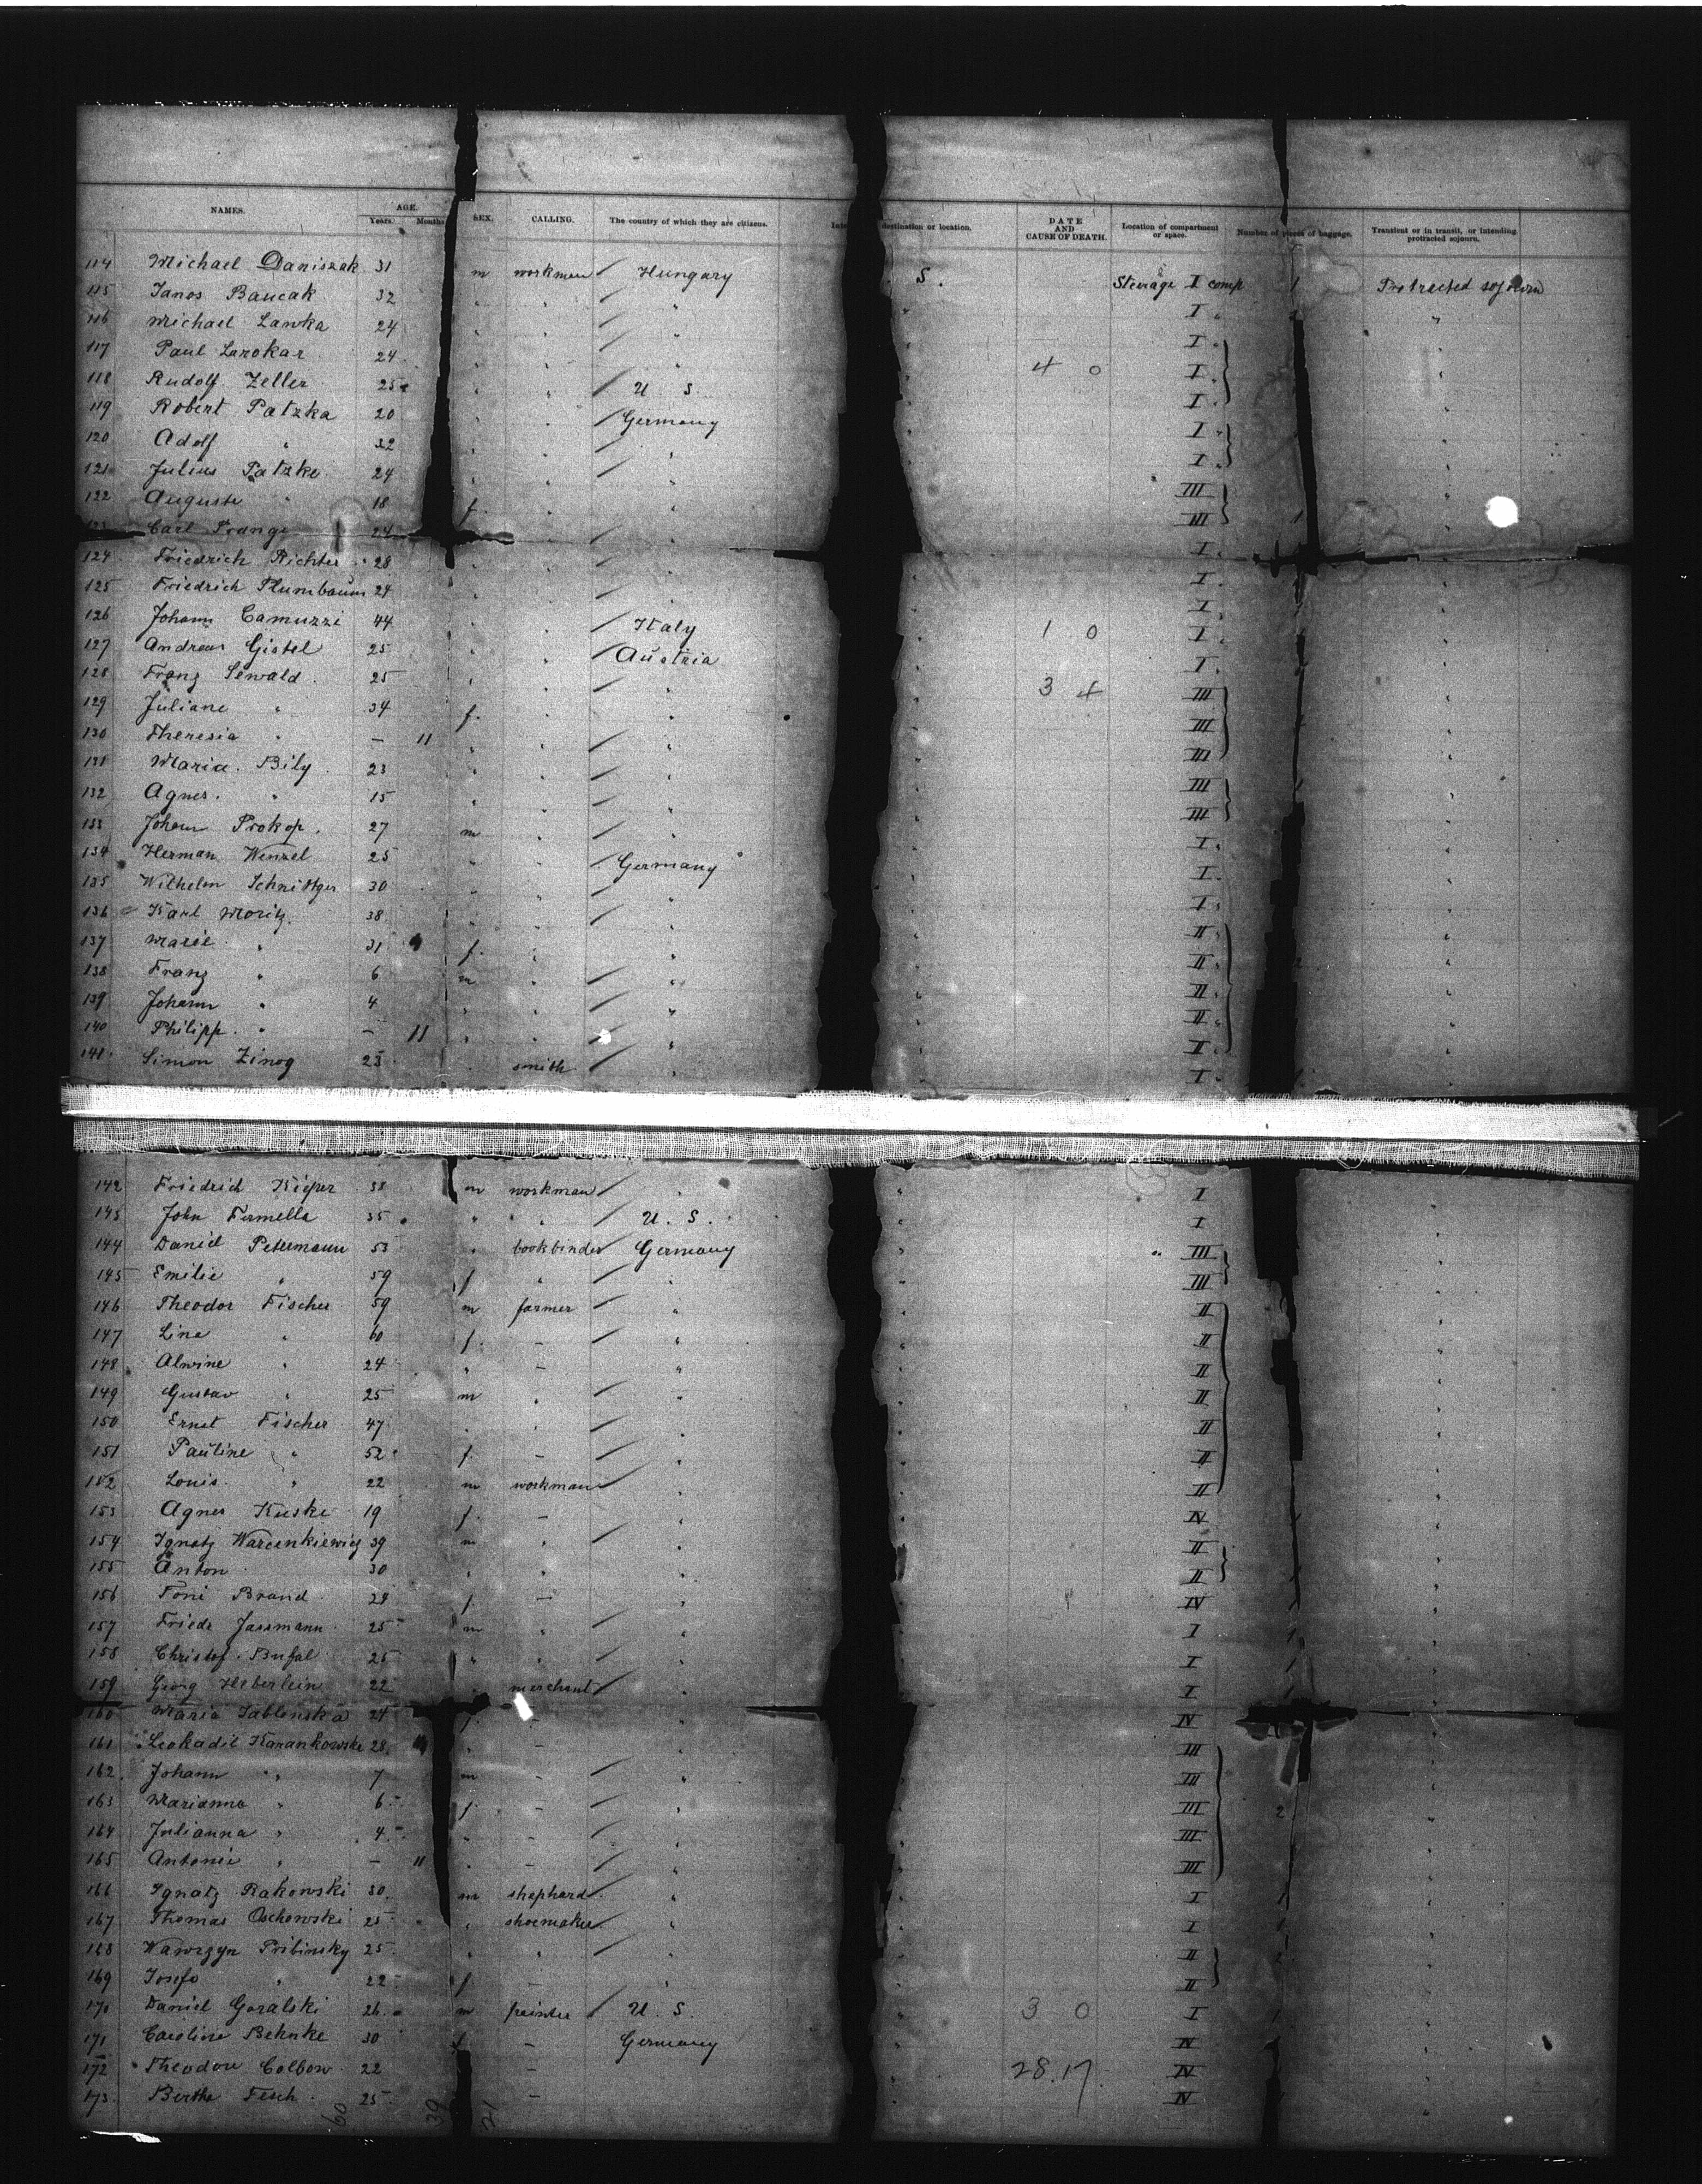 NAMES. AGE. Years. Months SEX. CALLING. The country of which they are citizens. destination or location. DATE AND CAUSE OF DEATH. Location of compartment or space. Number of pieces of baggage. Transient or in transit, or intending protracted sojourn.
114 Michael Daniszak 31 m workman Hungary S. Steerage I comp 1 Protracted sojourn
115 Janos Baucak 32 " I "
116 Michael Lawka 24 " I
117 Paul Lazokar 24 " 4 0 I
118 Rudolf Zeller 25 " U S I
119 Robert Patzka 20 " Germany I
120 Adolf " 32 " I
121 Julius Patzke 24 " III
122 Auguste " 18 f. " III
123 Carl Prange 24 " I
124 Friedrich Richter 28 " I
125 Friedrich Plumbaum 24 " I
126 Johann Camuzzi 44 " Italy 1 0 I
127 Andreas Gistel 25 " Austria I
128 Franz Sewald 25 " 3 4 III
129 Juliane " 34 f. " III
130 Theresia " — 11 " III
131 Maria Bily 23 " III
132 Agnes " 15 " III
133 Johann Prokop 27 m " I
134 Herman Wenzel 25 " Germany I
135 Wilhelm Schnittger 30 " I
136 Karl Moritz 38 " II
137 Marie " 31 f. " II
138 Franz " 6 m " II
139 Johann " 4 " II
140 Philipp " — 11 " II
141 Simon Zinog 23 smith " I
142 Friedrich Kieper 38 m workman " I
143 John Fermella 35 " U. S. I
144 Daniel Petermann 53 " bookbinder Germany III
145 Emilie " 59 f " III
146 Theodor Fischer 59 m farmer " II
147 Line " 60 f. — " II
148 Alwine " 24 " — " II
149 Gustav " 25 m " II
150 Ernst Fischer 47 " II
151 Pauline " 52 f. — " II
152 Louis " 22 m workman " II
153 Agnes Kuske 19 f. — " IV
154 Ignatz Warcenkiewicz 39 m " II
155 Anton 30 " II
156 Toni Brand 28 f. — " IV
157 Friedr Jassmann 25 m " I 1
158 Christof Bufal 25 " I 1
159 Georg Heberlein 22 merchant " I
160 Maria Jablonska 24 f. — " IV
161 Leokadie Karankowske 28 " — III
162 Johann " 7 m — " III
163 Marianna " 6 f. — " III 2
164 Julianna " 4 " — " III
165 Antonie " — 11 " — " III
166 Ignatz Rakowski 30 m shephard " I 1
167 Thomas Oschowski 25 " shoemaker " I 1
168 Wawrzyn Pribinsky 25 " II 2
169 Josefa " 22 f. — II
170 Daniel Goralski 26 m painter U. S. 3 0 I 1
171 Caroline Behnke 30 f — Germany IV
172 Theodore Colbow 22 — 28.17. IV
173 Bertha Fesch 25 — IV
60 39 21